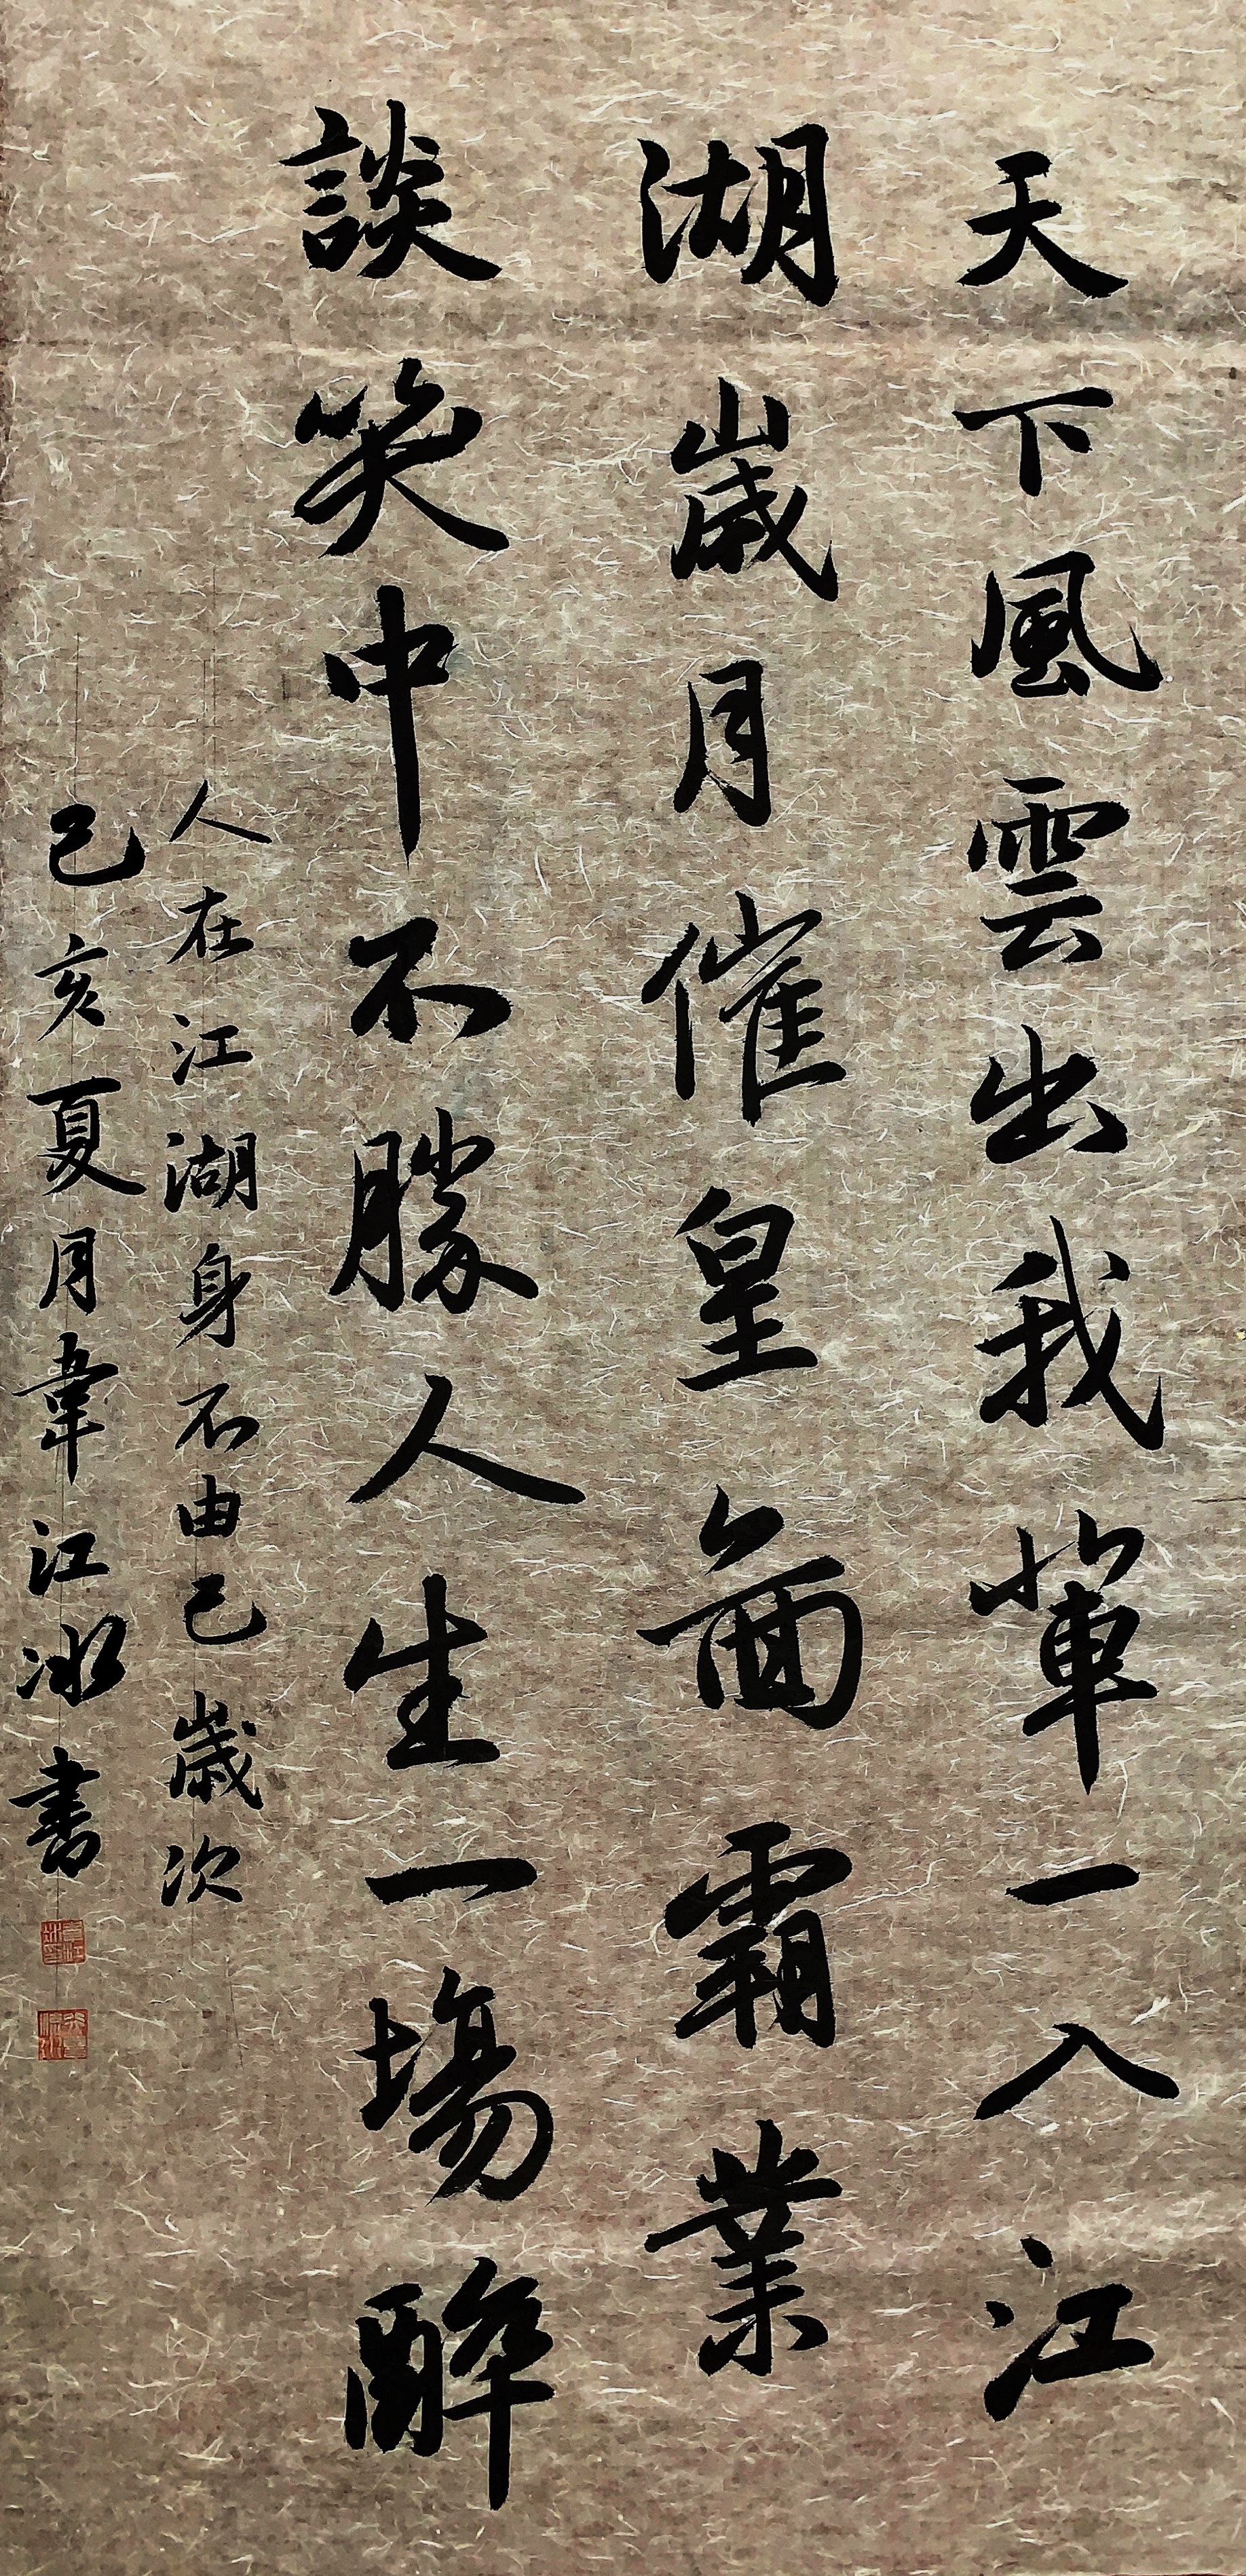 天下風雲出我輩一入江
湖歲月催皇啚霸業
談笑中不勝人生一場醉
人在江湖身不由己歲次
己亥夏月韋江冰書